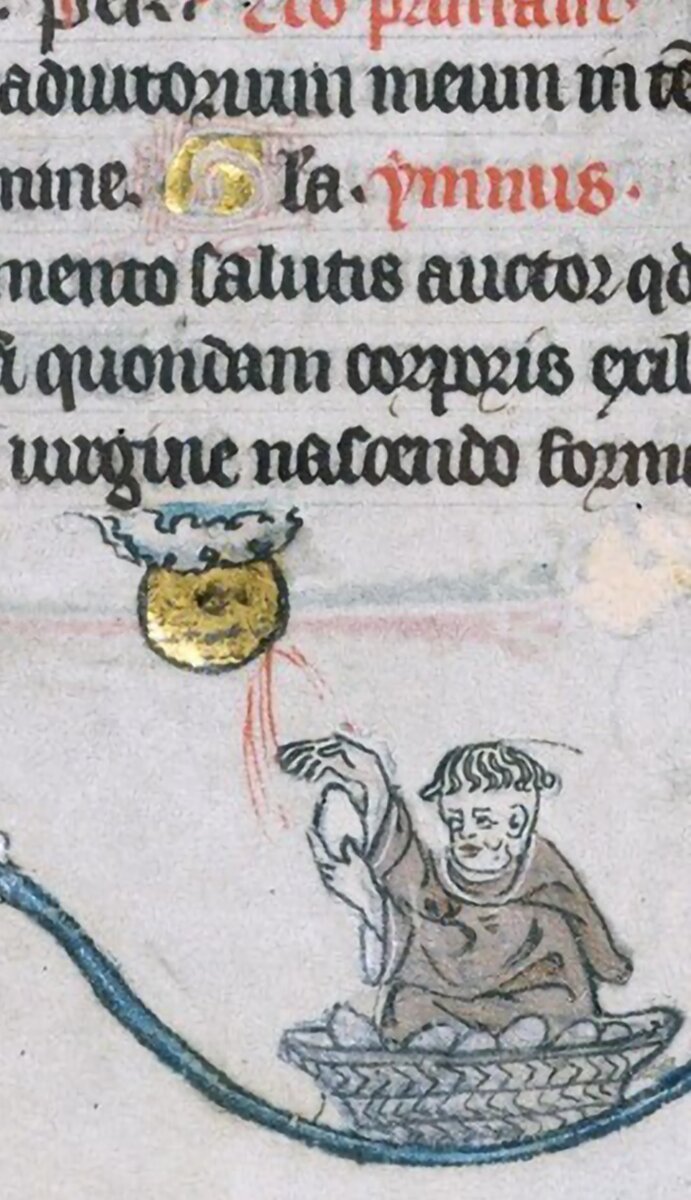 adiutorium meum in tē
mine. Gl'a. ymnus.
mento salutis auctor qd
quondam corporis exil
uirgine nascendo forme